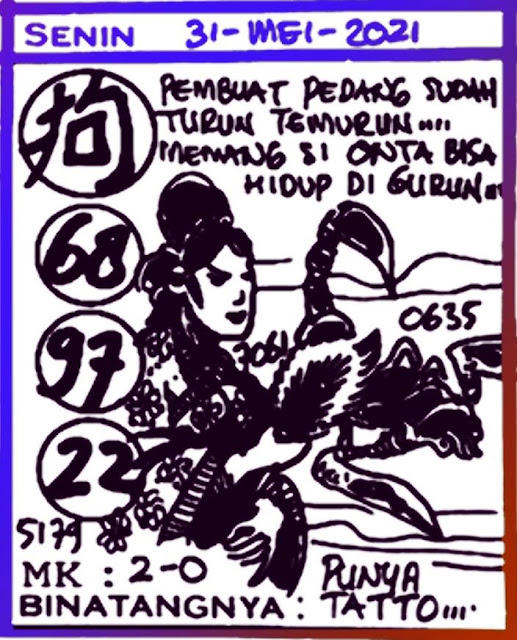 SENIN 31-MEI-2021
狗
PEMBUAT PEDANG SUDAH
TURUN TEMURUN.....
MEMANG SI ONTA BISA
HIDUP DI GURUN...
68
0635
97
7061
22
5179
MK : 2-0
PUNYA
BINATANGNYA : TATTO....